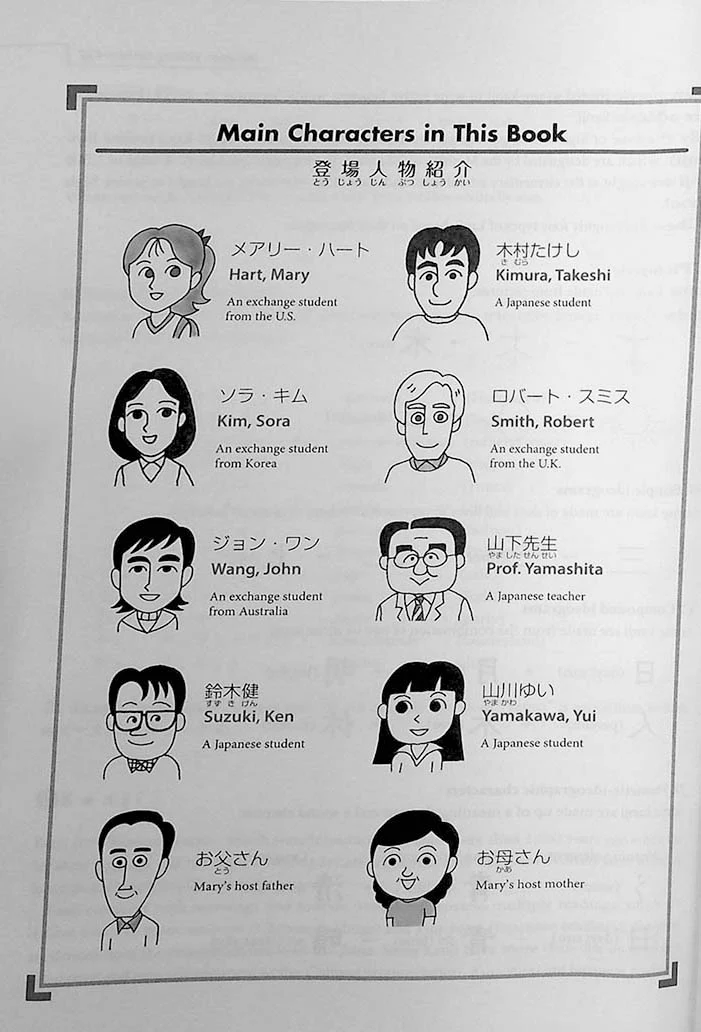 Main Characters in This Book
登場人物紹介
とう じょう じん ぶつ しょう かい
メアリー・ハート
Hart, Mary
An exchange student
from the U.S.
木村たけし
き むら
Kimura, Takeshi
A Japanese student
ソラ・キム
Kim, Sora
An exchange student
from Korea
ロバート・スミス
Smith, Robert
An exchange student
from the U.K.
ジョン・ワン
Wang, John
An exchange student
from Australia
山下先生
やま した せん せい
Prof. Yamashita
A Japanese teacher
鈴木健
すず き けん
Suzuki, Ken
A Japanese student
山川ゆい
やま かわ
Yamakawa, Yui
A Japanese student
お父さん
とう
Mary's host father
お母さん
かあ
Mary's host mother